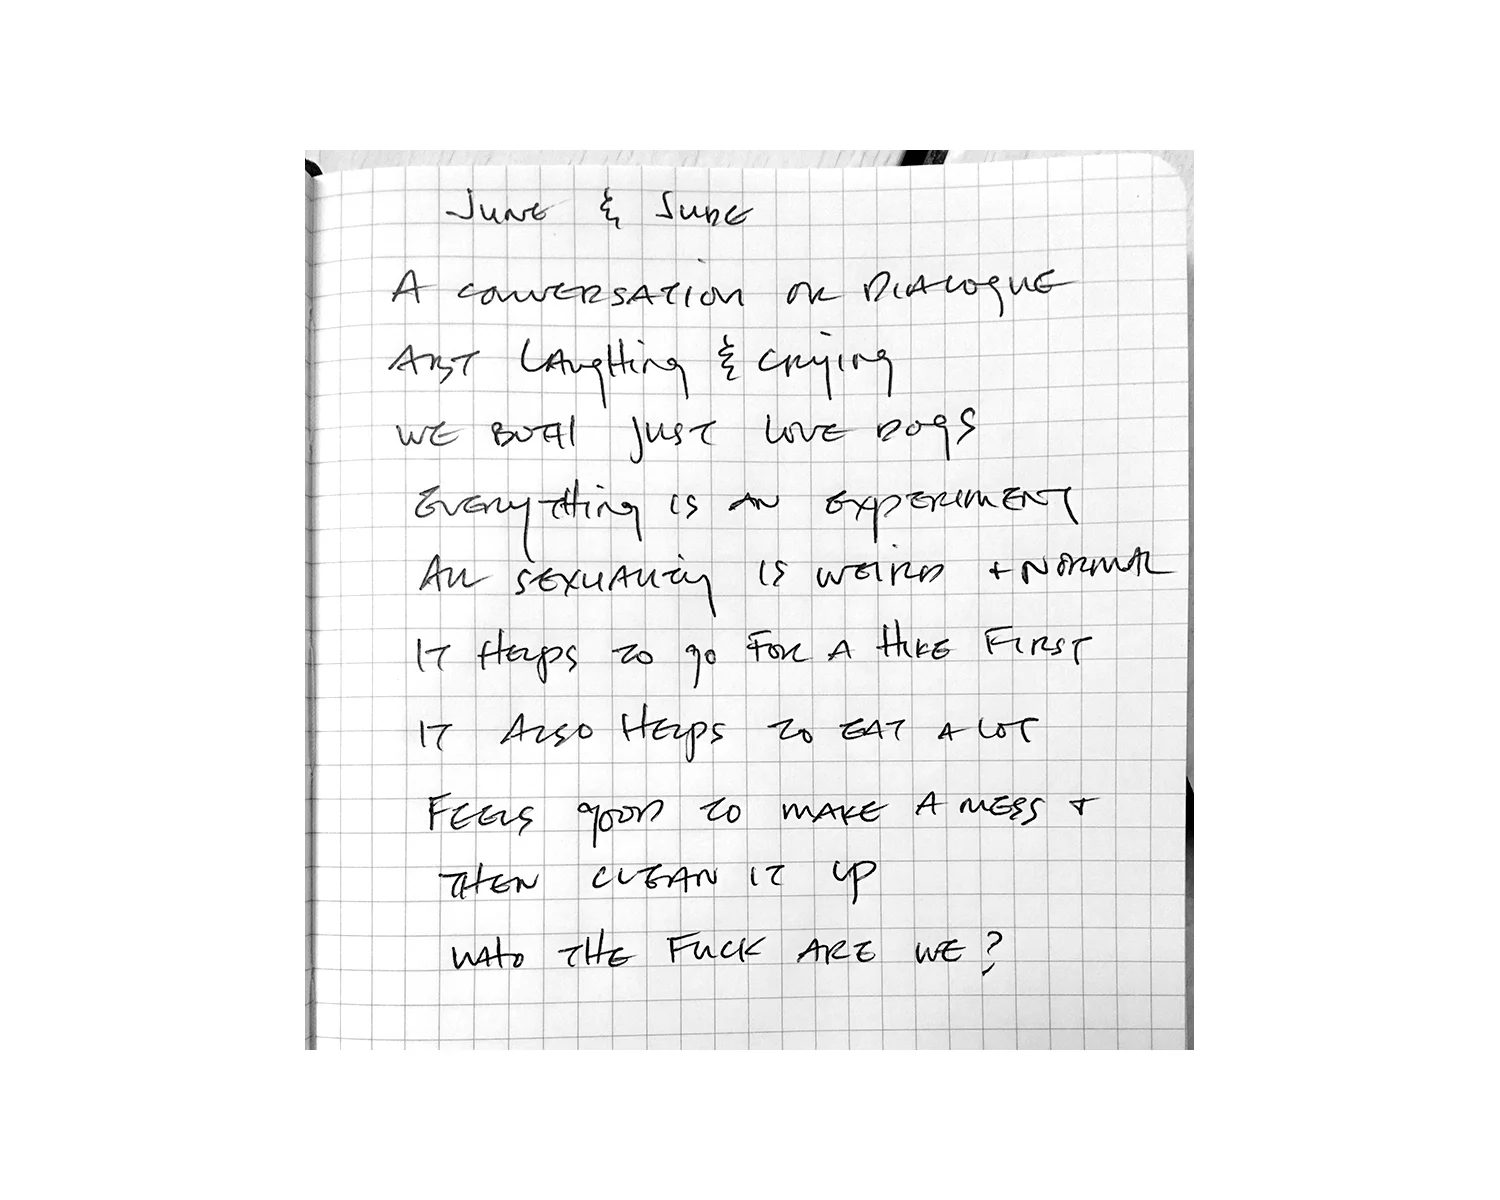 JUNE & JUDE
A CONVERSATION OR DIALOGUE
ART LAUGHING & CRYING
WE BOTH JUST LOVE DOGS
EVERYTHING IS AN EXPERIMENT
ALL SEXUALITY IS WEIRD + NORMAL
IT HELPS TO GO FOR A HIKE FIRST
IT ALSO HELPS TO EAT A LOT
FEELS GOOD TO MAKE A MESS +
THEN CLEAN IT UP
WHO THE FUCK ARE WE?